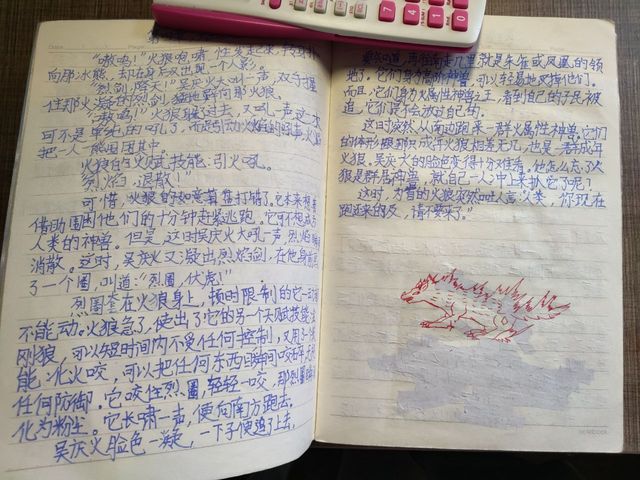 "嗷呜!"火狼咆哮,
向那冰熊,却在身后又出现一个人影。
"烈剑,降天!"吴庆火大叫一声,双手握
住那火焰的烈剑,猛地劈向那火狼。
"嗷呜!"火狼躲了过去,又吼一声这
可不是单纯的吼了,而是引动火焰的吼声,火焰
把一人一熊围困其中。
火狼的天赋技能:引火吼。
"烈焰,退散!"
可惜,火狼的如意算盘打错了。它本来想
借助围困他们的十分钟赶紧逃跑。它可不想成为
人类的神兽。但是,这时吴庆火大吼一声,烈焰
消散。这时,吴庆火又凝出烈焰剑,在他身前画
了一个圈,叫道:"烈圈,伏虎!"
烈圈套在火狼身上,顿时限制的它一动
不能动。火狼急了,使出了它的另一个天赋技能:
刚狼,可以短时间内不受任何控制,又用了
能:化火咬,可以把任何东西瞬间咬碎,
任何防御。它咬住烈圈,轻轻一咬,那烈圈
化为粉尘。它长啸一声,便向南方跑去。
吴庆火脸色一凝,一下子便追了上去,
要知道,再往南走几里就是朱雀或凤凰的领
地了。它们身为高阶神兽,可以轻易地灭掉他们。
而且,它们身为火属性神兽之王,看到自己的子民被
追,它们是不会放过自己的。
这时突然从南边跑来一群火属性神兽,它们
的体形跟那只成年火狼相差无几,也是一群成年
火狼,吴庆火的脸色变得十分难看。他怎么忘了火
狼是群居神兽,就自己一人冲上来扒它了呢?
这时,为首的火狼突然叫人言:"人类,你现在
跑还来的及,请不要来了。"